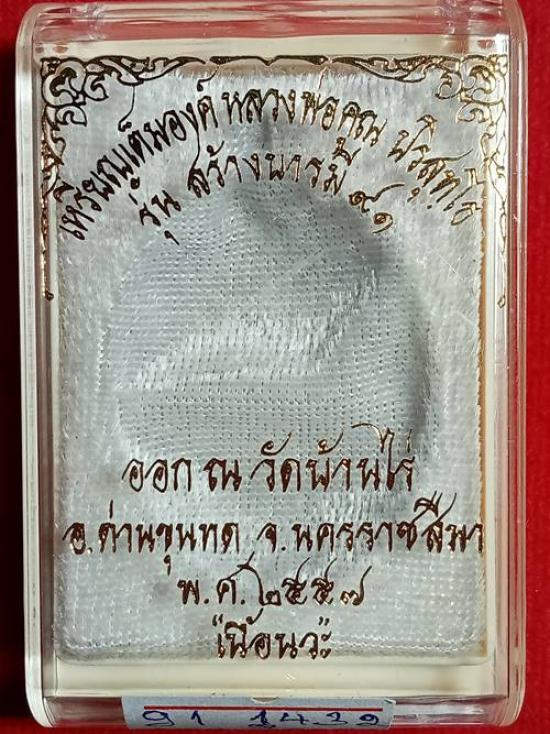 เหรียญเต็มองค์ หลวงพ่อคูณ ปริสุทโธ
รุ่น สร้างบารมี ๙๑
ออก ณ วัดบ้านไร่
อ.ด่านขุนทด จ.นครราชสีมา
พ.ศ.๒๕๕๗
"เนื้อนวะ"
91 1432